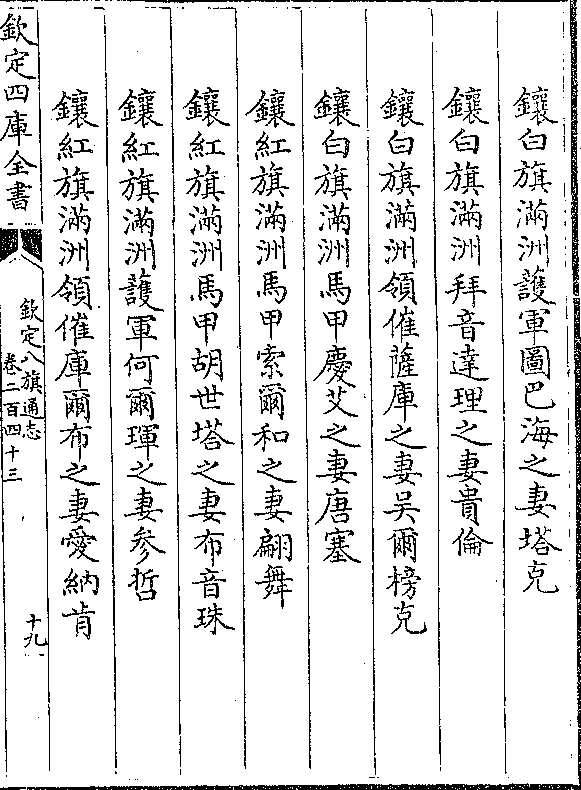 鑲白旗滿洲護軍圖巴海之妻塔克
鑲白旗滿洲拜音達理之妻貴倫
鑲白旗滿洲領催薩庫之妻吳爾榜克
鑲白旗滿洲馬甲慶艾之妻唐塞
鑲紅旗滿洲馬甲索爾和之妻翩舞
鑲紅旗滿洲馬甲胡世塔之妻布音珠
鑲紅旗滿洲護軍何爾琿之妻參哲
鑲紅旗滿洲領催庫爾布之妻愛納肯
欽定四庫全書
欽定八旗通志
卷二百四十三
十九